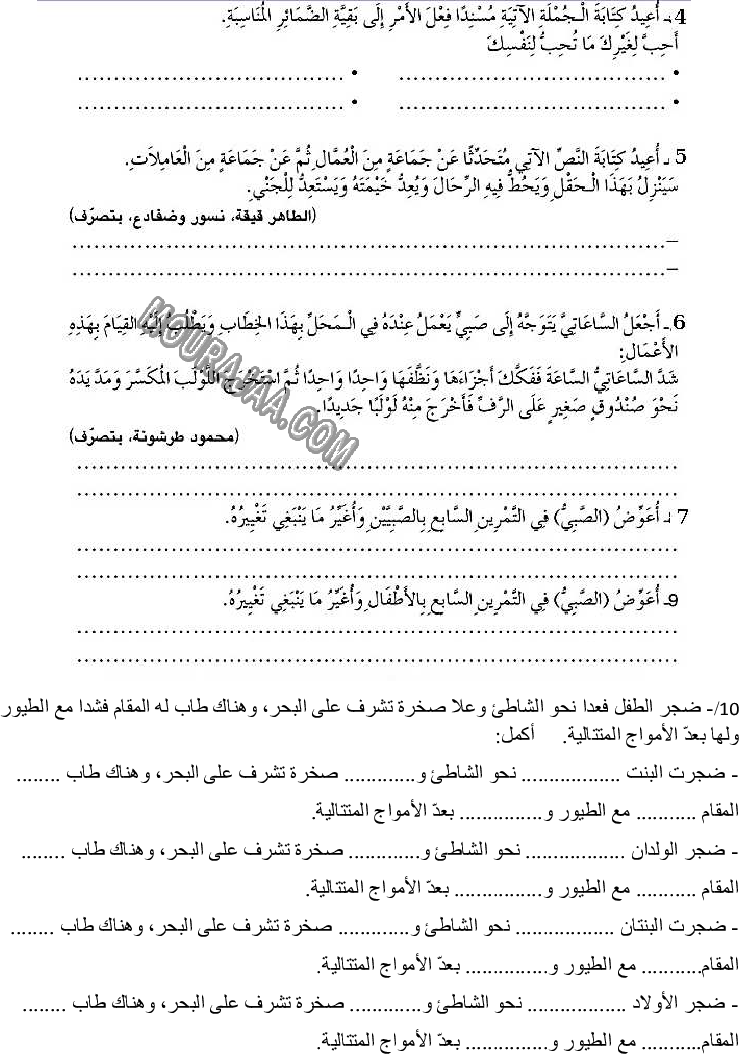 4 ـ أُعِيدُ كِتَابَةَ الْـجُمْلَةِ الآتِيَةِ مُسْنِدًا فِعْلَ الأَمْرِ إِلَى بَقِيَّةِ الضَّمَائِرِ الْمُنَاسِبَةِ.
أَحِبَّ لِغَيْرِكَ مَا تُحِبُّ لِنَفْسِكَ
• ..................................... • .....................................
• ..................................... • .....................................
5 ـ أُعِيدُ كِتَابَةَ النَّصِّ الآتِي مُتَحَدِّثًا عَنْ جَمَاعَةٍ مِنَ الْعُمَّالِ ثُمَّ عَنْ جَمَاعَةٍ مِنَ الْعَامِلاَتِ.
سَيَنْزِلُ بِهَذَا الْـحَقْلِ وَيَحُطُّ فِيهِ الرِّحَالَ وَيُعِدُّ خَيْمَتَهُ وَيَسْتَعِدُّ لِلْجَنْيِ.
(الطاهر قيقة، نسور وضفادع، بتصرّف)
–.....................................................................................
–.....................................................................................
6 ـ أَجْعَلُ السَّاعَاتِيَّ يَتَوَجَّهُ إِلَى صَبِيٍّ يَعْمَلُ عِنْدَهُ فِي الْـمَحَلِّ بِهَذَا الْخِطَابِ وَيَطْلُبُ إِلَيْهِ القِيَامَ بِهَذِهِ
الأَعْمَالِ:
شَدَّ السَّاعَاتِيُّ السَّاعَةَ فَفَكَّكَ أَجْزَاءَهَا وَنَظَّفَهَا وَاحِدًا وَاحِدًا ثُمَّ اسْتَخْرَجَ اللَّوْلَبَ الْمُكَسَّرَ وَمَدَّ يَدَهُ
نَحْوَ صُنْدُوقٍ صَغِيرٍ عَلَى الرَّفِّ فَأَخْرَجَ مِنْهُ لَوْلَبًا جَدِيدًا.
(محمود طرشونة، بتصرّف)
MOURAJAA.COM
.....................................................................................
.....................................................................................
7 ـ أُعَوِّضُ (الصَّبِيُّ) فِي التَّمْرِينِ السَّابِعِ بِالصَّبِيَّيْنِ وَأُغَيِّرُ مَا يَنْبَغِي تَغْيِيرُهُ.
.....................................................................................
.....................................................................................
9ـ أُعَوِّضُ (الصَّبِيُّ) فِي التَّمْرِينِ السَّابِعِ بِالأَطْفَالِ وَأُغَيِّرُ مَا يَنْبَغِي تَغْيِيرُهُ.
.....................................................................................
.....................................................................................
10/- ضجر الطفل فعدا نحو الشاطئ وعلا صخرة تشرف على البحر، وهناك طاب له المقام فشدا مع الطيور
ولها بعدّ الأمواج المتتالية. أكمل:
- ضجرت البنت .................. نحو الشاطئ و............. صخرة تشرف على البحر، وهناك طاب ........
المقام ........... مع الطيور و............... بعدّ الأمواج المتتالية.
- ضجر الولدان .................. نحو الشاطئ و............. صخرة تشرف على البحر، وهناك طاب ........
المقام ........... مع الطيور و................ بعدّ الأمواج المتتالية.
- ضجرت البنتان .................. نحو الشاطئ و............. صخرة تشرف على البحر، وهناك طاب ........
المقام........... مع الطيور و............... بعدّ الأمواج المتتالية.
- ضجر الأولاد .................. نحو الشاطئ و............. صخرة تشرف على البحر، وهناك طاب ........
المقام........... مع الطيور و............... بعدّ الأمواج المتتالية.